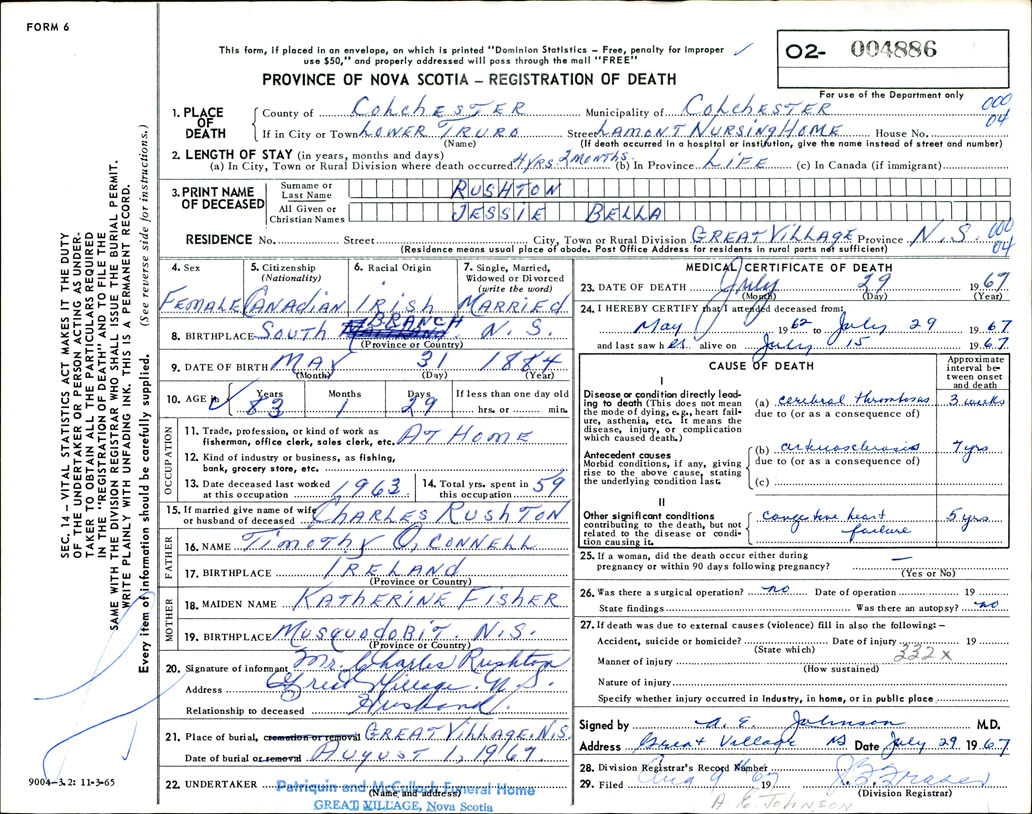 FORM 6
This form, if placed in an envelope, on which is printed "Dominion Statistics – Free, penalty for improper
use $50," and properly addressed will pass through the mail "FREE"
PROVINCE OF NOVA SCOTIA – REGISTRATION OF DEATH
O2- 004886
For use of the Department only
1. PLACE OF DEATH
County of COLCHESTER Municipality of COLCHESTER 000
If in City or Town LOWER TRURO Street LAMONT NURSING HOME House No. 04
(Name) (If death occurred in a hospital or institution, give the name instead of street and number)
2. LENGTH OF STAY (in years, months and days)
(a) In City, Town or Rural Division where death occurred 4 YRS 2 MONTHS. (b) In Province LIFE (c) In Canada (if immigrant)
3. PRINT NAME OF DECEASED
Surname or Last Name RUSHTON
All Given or Christian Names JESSIE BELLA
RESIDENCE No. Street City, Town or Rural Division GREAT VILLAGE Province N.S. 000
(Residence means usual place of abode. Post Office Address for residents in rural parts not sufficient) 04
4. Sex FEMALE
5. Citizenship (Nationality) CANADIAN
6. Racial Origin IRISH
7. Single, Married, Widowed or Divorced (write the word) MARRIED
8. BIRTHPLACE SOUTH BRANCH N.S.
(Province or Country)
9. DATE OF BIRTH MAY 31 1884
(Month) (Day) (Year)
10. AGE in Years Months Days If less than one day old
83 1 29 hrs. or min.
OCCUPATION
11. Trade, profession, or kind of work as
fisherman, office clerk, sales clerk, etc. AT HOME
12. Kind of industry or business, as fishing,
bank, grocery store, etc.
13. Date deceased last worked at this occupation 1963
14. Total yrs. spent in this occupation 59
15. If married give name of wife
or husband of deceased CHARLES RUSHTON
FATHER
16. NAME TIMOTHY O,CONNELL
17. BIRTHPLACE IRELAND
(Province or Country)
MOTHER
18. MAIDEN NAME KATHERINE FISHER
19. BIRTHPLACE MUSQUODOBIT. N.S.
(Province or Country)
20. Signature of informant Mr. Charles Rushton
Address Great Village. N.S.
Relationship to deceased Husband
21. Place of burial, cremation or removal GREAT VILLAGE, N.S.
Date of burial or removal AUGUST 1, 1967.
22. UNDERTAKER Patriquin and McCulloch Funeral Home
(Name and address)
GREAT VILLAGE, Nova Scotia
MEDICAL CERTIFICATE OF DEATH
23. DATE OF DEATH July 29 1967
(Month) (Day) (Year)
24. I HEREBY CERTIFY that I attended deceased from:
May 1962 to July 29 1967
and last saw her alive on July 15 1967.
CAUSE OF DEATH
Approximate interval between onset and death
I
Disease or condition directly leading to death (This does not mean the mode of dying, e.g., heart failure, asthenia, etc. It means the disease, injury, or complication which caused death.)
(a) cerebral thrombosis 3 weeks
due to (or as a consequence of)
Antecedent causes
Morbid conditions, if any, giving rise to the above cause, stating the underlying condition last.
(b) arteriosclerosis 7 yrs
due to (or as a consequence of)
(c)
II
Other significant conditions
contributing to the death, but not related to the disease or condition causing it.
congestive heart failure 5 yrs
25. If a woman, did the death occur either during
pregnancy or within 90 days following pregnancy? —
(Yes or No)
26. Was there a surgical operation? no Date of operation 19
State findings Was there an autopsy? no
27. If death was due to external causes (violence) fill in also the following: –
Accident, suicide or homicide? Date of injury 19
(State which) 332x
Manner of injury
(How sustained)
Nature of injury
Specify whether injury occurred in industry, in home, or in public place
Signed by A. E. Johnson M.D.
Address Great Village NS Date July 29 1967
28. Division Registrar's Record Number
29. Filed Aug 9 1967
(Division Registrar)
A. E. JOHNSON
SEC. 14 – VITAL STATISTICS ACT MAKES IT THE DUTY
OF THE UNDERTAKER OR PERSON ACTING AS UNDER-
TAKER TO OBTAIN ALL THE PARTICULARS REQUIRED
IN THE "REGISTRATION OF DEATH" AND TO FILE THE
SAME WITH THE DIVISION REGISTRAR WHO SHALL ISSUE THE BURIAL PERMIT.
WRITE PLAINLY WITH UNFADING INK. THIS IS A PERMANENT RECORD.
Every item of information should be carefully supplied. (See reverse side for instructions.)
9004–3.2: 11-3-65